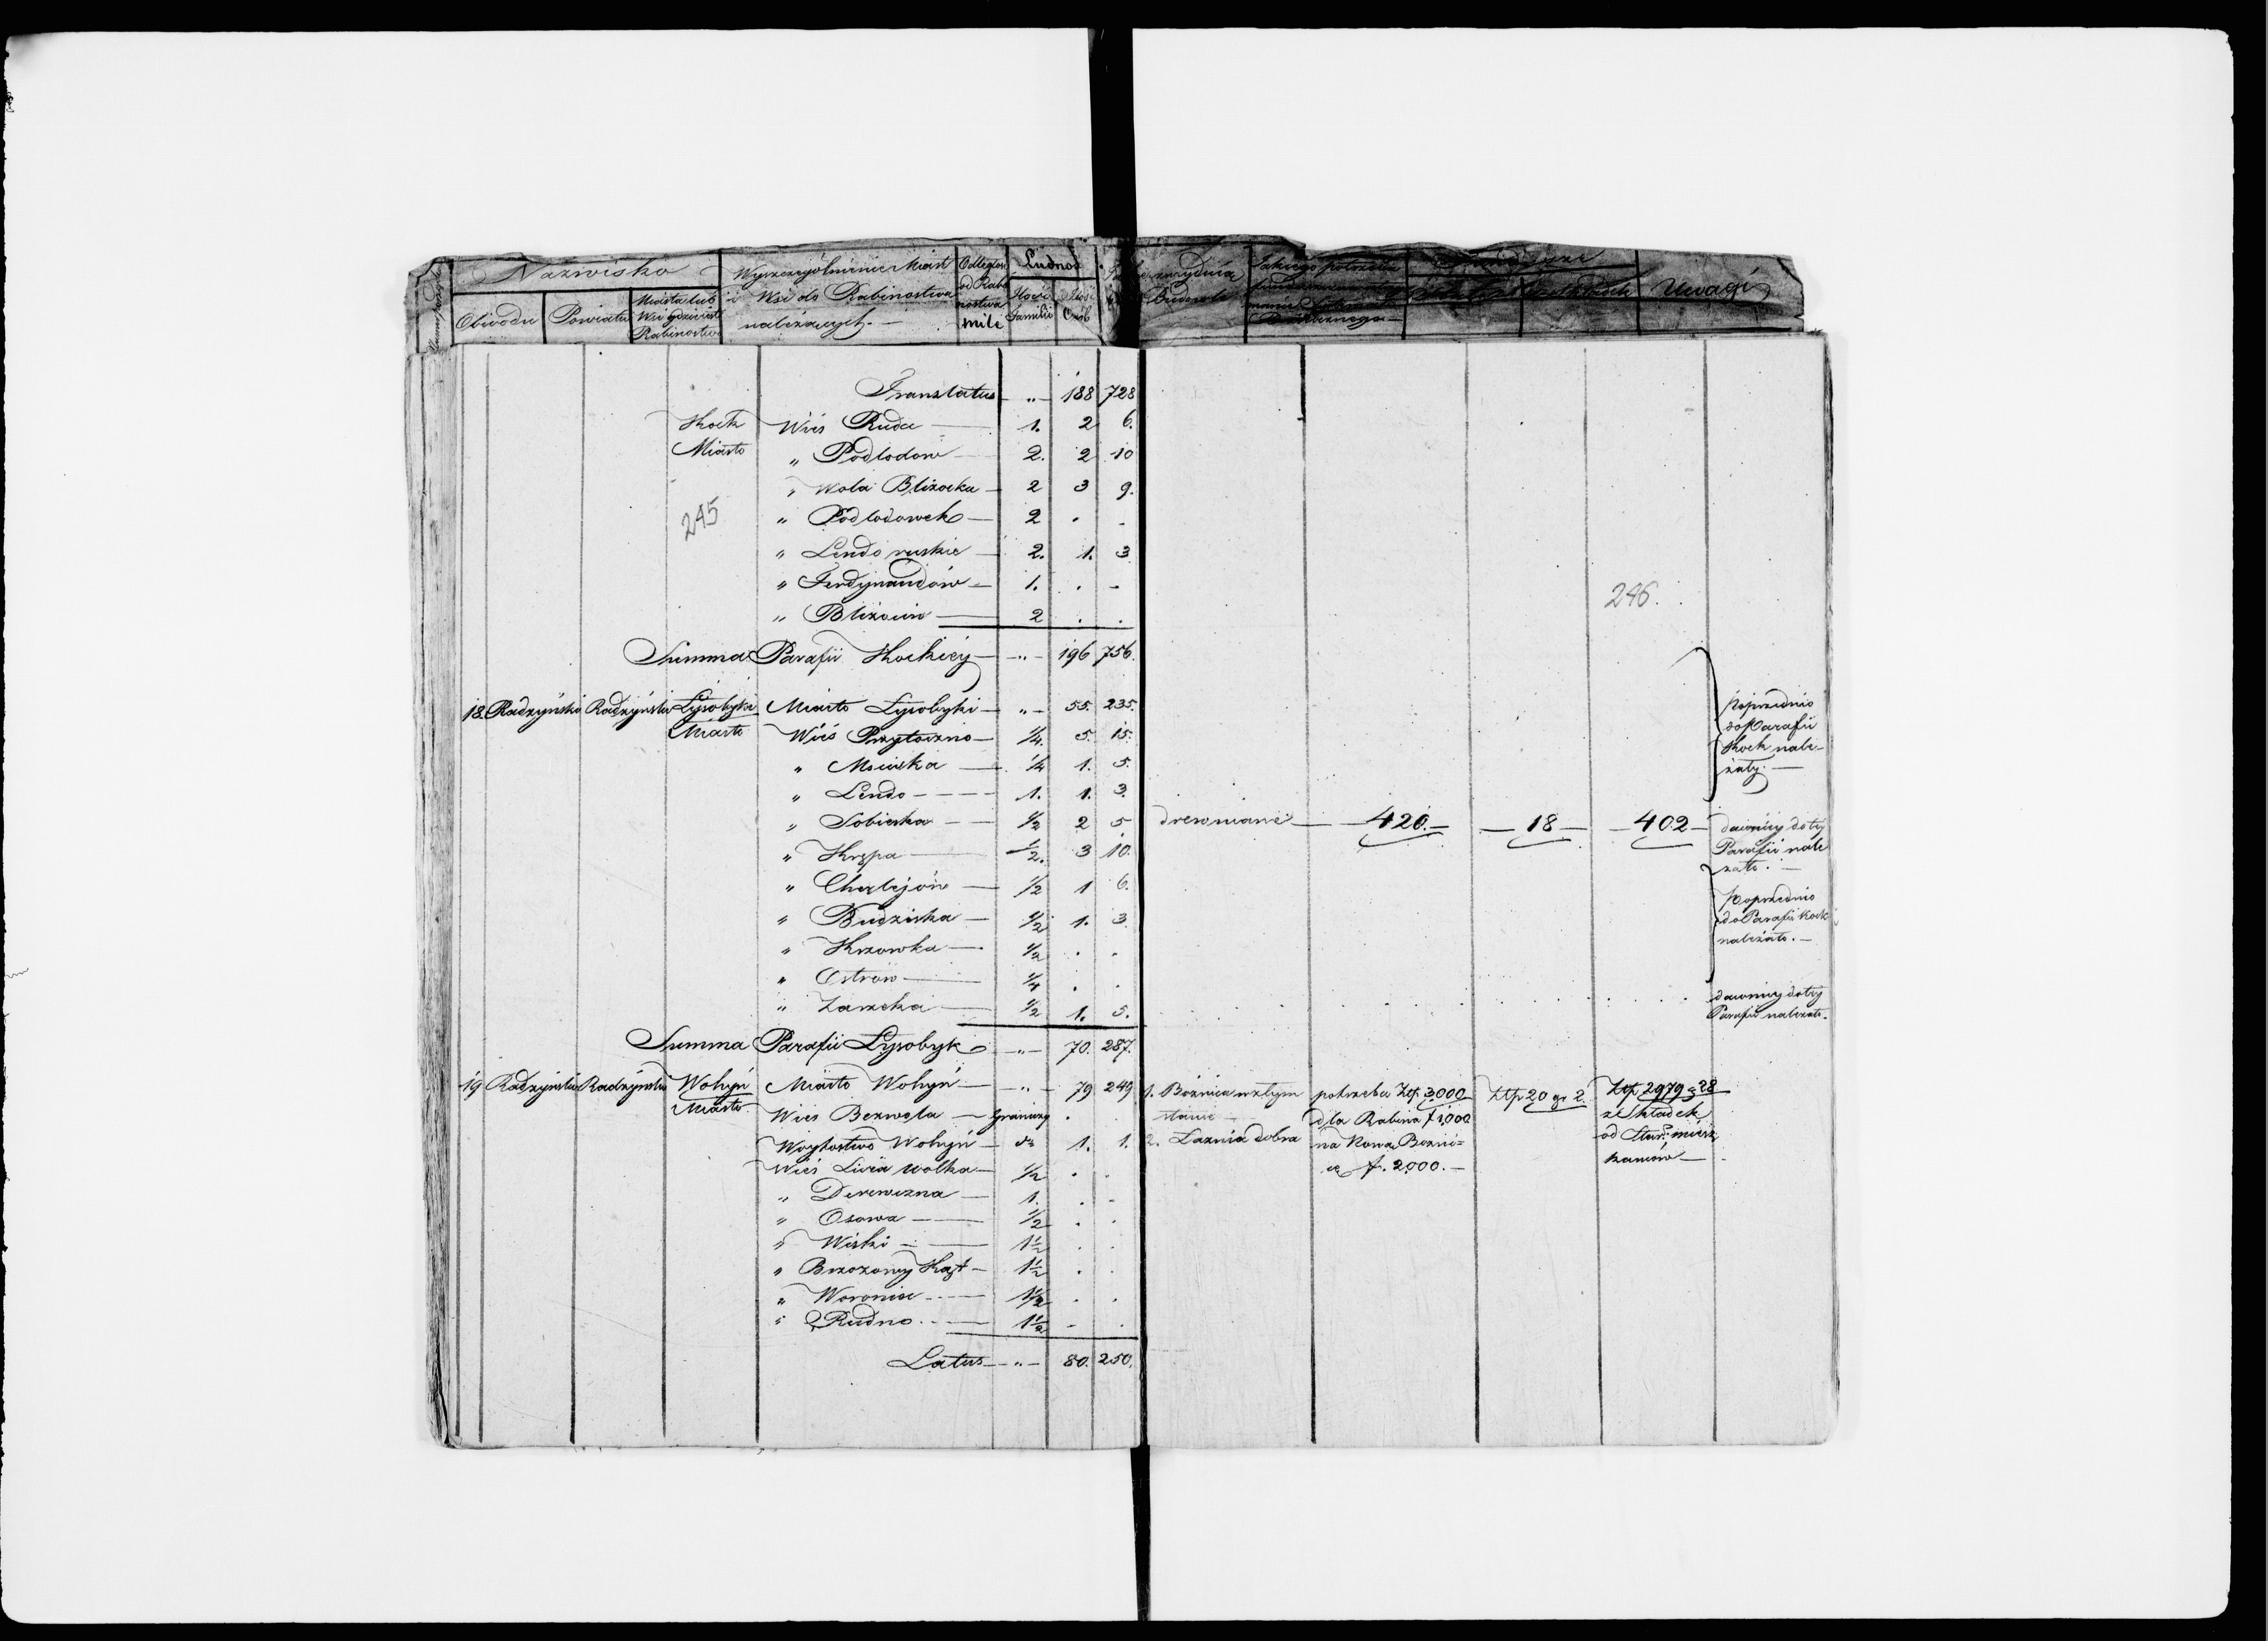 Nazwisko
Obwodu Powiatu Miasta lub Wsi gdzie jest Rabinostwo
Wyszczególnienie Miast i Wsi do Rabinostwa należących.—
Odległość od Rabinostwa mile
Ludność
Ilość Familii Ilość Osób
Budowle
Uwagi
Translatus — „ — 188 728
Kock Wieś Ruda — 1. 2 6.
Miasto „ Podlodow — 2. 2 10
„ Wola Blizocka — 2 3 9.
245 „ Podlodowek — 2 . -
„ Lendo ruskie — 2. 1. 3
„ Ferdynandów — 1. . -
246.
„ Blizocin — 2 . .
Summa Parafii Kockiey — „ — 196 756.
18. Radzyński Radzyński Łysobyki Miasto Łysobyki — „ — 55. 235.
Miasto Wieś Przytoczno — 1/4. 5. 15.
Poprzednio
do Parafii
Kock nale-
żały. —
„ Mściska — 1/4 1. 5.
„ Lendo — 1. 1. 3.
„ Sobieska — 1/2 2 5 drewniane — 420. — — 18 — — 402 — dawniey do tey
Parafii nale
żało. —
„ Krępa — 1/2. 3 10.
„ Charlejów — 1/2 1 6.
„ Budziska — 1/2 1. 3.
Poprzednio
do Parafii Kock
należało. —
„ Krzowka — 1/2 . .
„ Ostrów — 1/4 . .
„ Zarzcka — 1/2 1. 5. dawniey do tey
Parafii należało.
Summa Parafii Łysobyk — „ — 70. 287.
19 Radzyński Radzyński Wohyń Miasto Wohyń — „ — 79 249 1. Bóżnica w złym potrzeba Złp. 3000 Złp 20 gr 2. Złp 2979 g 28
Miasto. Wieś Bezwola — graniczy . stanie dla Rabina f 1,000 z Składek
Woytostwo Wohyń — do 1. 1. 2. Łaznia dobra na Nową Bozni= od Star. miesz
Wieś Liwia wolka — 1/2 . . cę f. 2,000. — kancow —
„ Derewizna — 1. . -
„ Osowa — 1/2 . .
„ Wiski — 1 1/2 . .
„ Brzozowy Kąt — 1 1/2 .
„ Woronice — 1 1/2 . .
„ Rudno — 1 1/2 - .
Latus — „ — 80. 250.